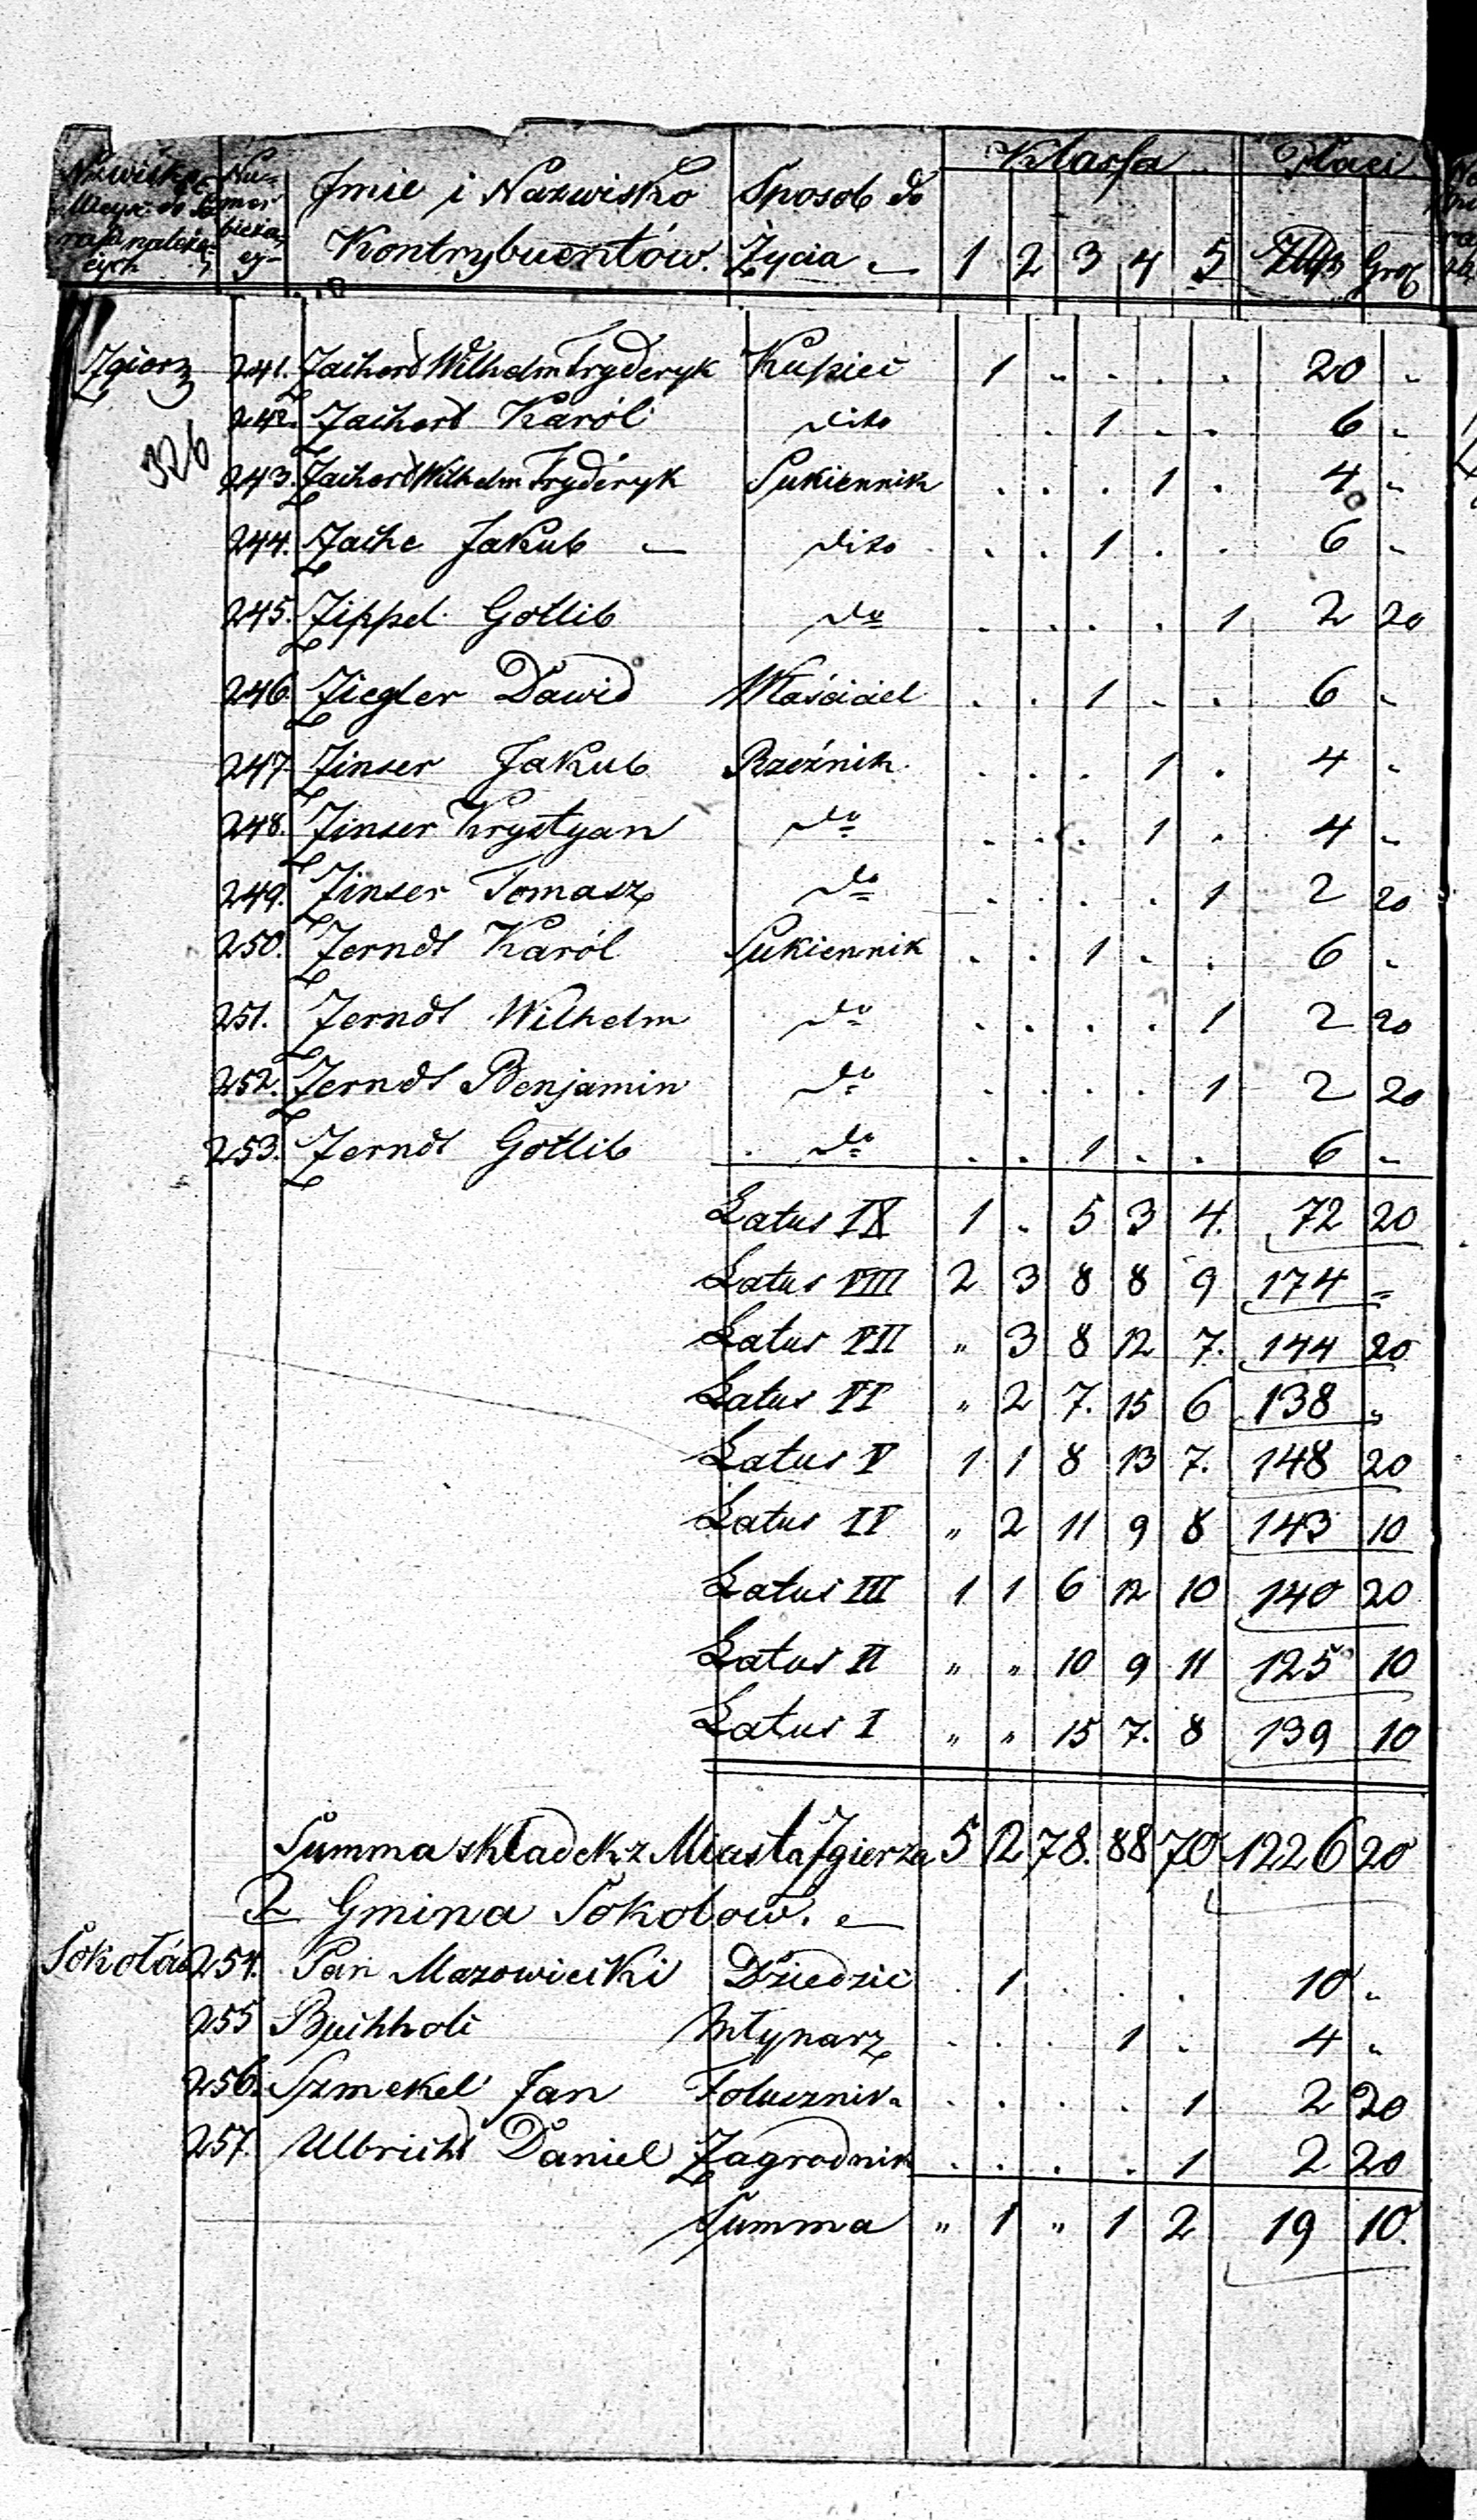 Klassa Płaci
Imie i Nazwisko Sposob do
Kontrybuentów. Życia 1 2 3 4 5 Złłp Gro
Zgierz 241. Zachert Wilhelm Fryderyk Kupiec 1 " . . . 20 "
242. Zachert Karól dito . . 1 . . 6 "
326
243. Zachert Wilhelm Fryderyk Sukiennik . . . 1 . 4 "
244. Zache Jakub — dito . . 1 . . 6 "
245. Zippel Gotlib do . . . . 1 2 20
246. Ziegler Dawid Właściciel . . 1 . . 6 "
247. Zinser Jakub Rzeźnik . . . 1 . 4 "
248. Zinser Krystyan do . . . 1 . 4 "
249. Zinser Tomasz do . . . . 1 2 20
250. Zerndt Karól Sukiennik . . 1 . . 6 "
251. Zerndt Wilhelm do . . . . 1 2 20
252. Zerndt Benjamin do . . . . 1 2 20
253. Zerndt Gotlib do . . 1 . . 6 "
Latus IX 1 . 5 3 4. 72 20
Latus VIII 2 3 8 8 9 174 "
Latus VII " 3 8 12 7. 144 20
Latus VI " 2 7. 15 6 138 "
Latus V 1 1 8 13 7. 148 20
Latus IV " 2 11 9 8 143 10
Latus III 1 1 6 12 10 140 20
Latus II " " 10 9 11 125 10
Latus I " " 15 7. 8 139 10
Summa składek z Miasta Zgierza 5 12 78. 88 70 1226 20
2 Gmina Sokołow. —
254. Pan Mazowiecki Dziedzic . 1 . . . 10 "
255 Buchholc Młynarz . . . 1 . 4 "
256. Szmekel Jan Folusznik . . . . 1 2 20
257. Ulbricht Daniel Zagrodnik . . . . 1 2 20
Summa " 1 " 1 2 19 10.